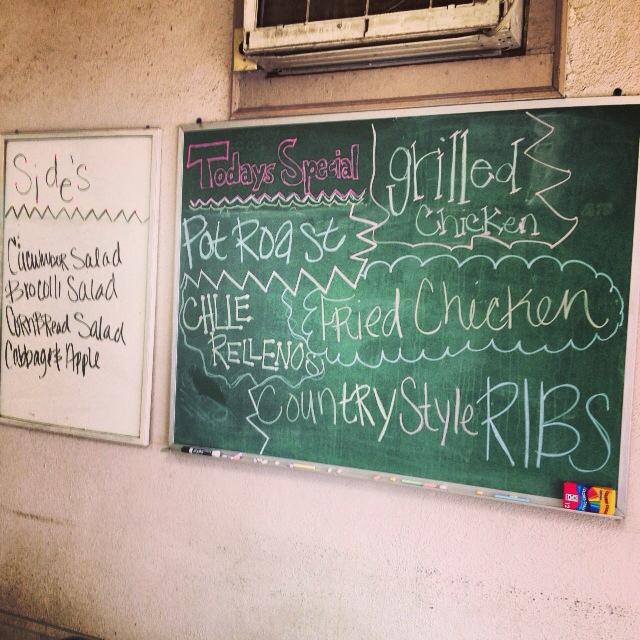 Side's
Cucumber Salad
Brocolli Salad
CornBread Salad
Cabbage & Apple
Todays Special
Pot Roast
CHLIE
RELLENOS
grilled
Chicken
Fried Chicken
Country Style RIBS